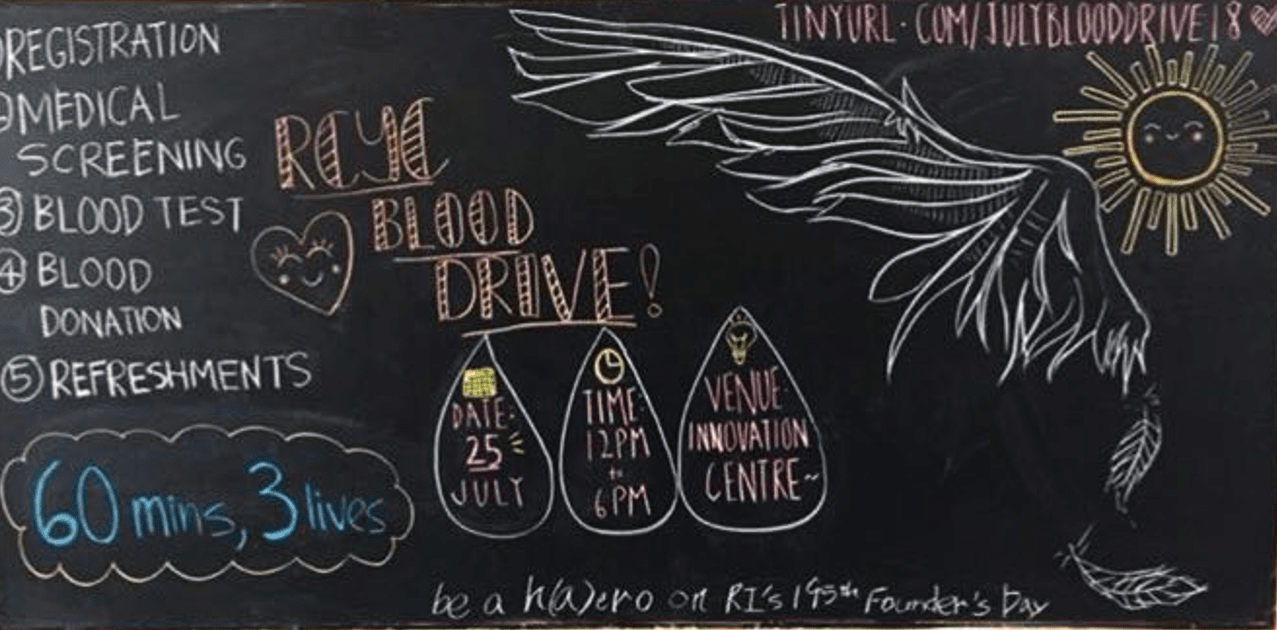 REGISTRATION
MEDICAL
SCREENING
③ BLOOD TEST
④ BLOOD
DONATION
⑤ REFRESHMENTS
60 mins, 3 lives
RCYC
BLOOD
DRIVE!
DATE:
25
JULY
TIME:
12PM
to
6PM
VENUE:
INNOVATION
CENTRE~
TINYURL.COM/JULYBLOODDRIVE18
be a h(a)ero on RI's 195th Founder's Day